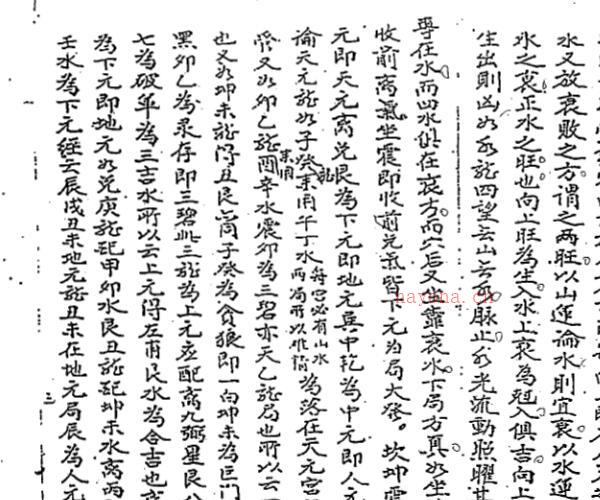 水又放衰敗之方謂之两旺以山運論水則宜衰以水運
水之衰正水之旺也向上旺為生入水上衰為尅入俱吉向上
生出則凶如水龍四望云山若水脉止水光流動照耀其
專在水而四水俱在衰方而穴后又坐靠衰水下局方真如坐
收前离氣坐震即收前兑氣皆下元为局大發。坎坤震
元即天元离兑艮為下元即地元巽中乾為中元即人元
論天元龍如子癸来甬午丁水
符宫必有山水
两局所以惟
為落在天元宫
管又如卯乙龍酉辛水震卯為三碧亦天乙龍局也所以云一
也又如坤未龍得丑艮甬子癸為貪狼即一白坤未為巨門
黑卯乙為录存即三碧此三龍為上元左配离九弼星艮八
七為破軍為三吉水所以云上元得左甫艮水為合吉也
為下元即地元如兑庚龍配甲卯水艮丑龍配坤未水离丙
壬水為下元經云辰戌丑未地元龍丑未在地元局辰為人元
三
hayona.cn